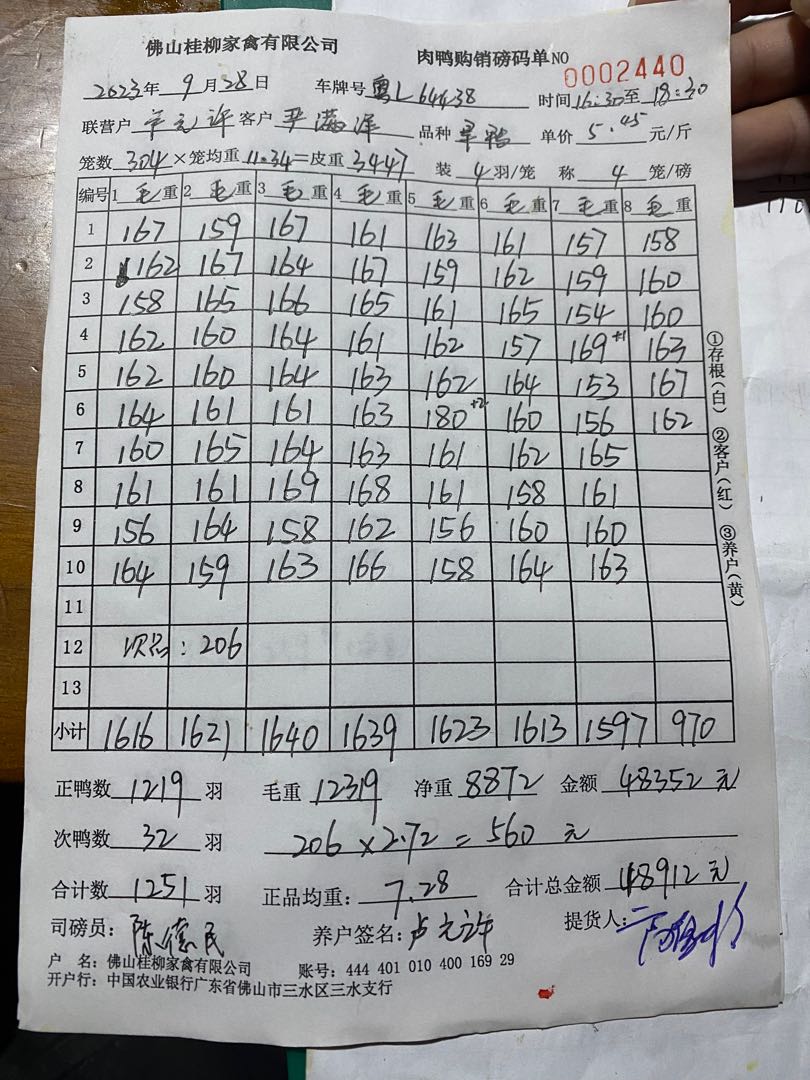 佛山桂柳家禽有限公司 肉鸭购销磅码单NO 0002440
2023年 9月28日 车牌号 粤L64438 时间16:30至18:30
联营户 元许 客户 严满洋 品种 单价 5.45 元/斤
笼数 304 ×笼均重 11.34=皮重 3447 装 4 羽/笼 称 4 笼/磅
编号 1 毛重 2 毛重 3 毛重 4 毛重 5 毛重 6 毛重 7 毛重 8 毛重
1 167 159 167 161 163 161 157 158
2 162 167 164 167 159 162 159 160
3 158 165 166 165 161 165 154 160
4 162 160 164 161 162 157 169+1 163
5 162 160 164 163 162 164 153 167
6 164 161 161 163 180+2 160 156 162
7 160 165 164 163 161 162 165
8 161 161 169 168 161 158 161
9 156 164 158 162 156 160 160
10 164 159 163 166 158 164 163
11
12 次品:206
13
小计 1616 1621 1640 1639 1623 1613 1597 970
①存根(白) ②客户(红) ③养户(黄)
正鸭数 1219 羽 毛重 12319 净重 8872 金额 48352 元
次鸭数 32 羽 206×2.72=560 元
合计数 1251 羽 正品均重: 7.28 合计总金额 48912 元
司磅员: 陈德民 养户签名: 卢元许 提货人:
户 名: 佛山桂柳家禽有限公司 账号: 444 401 010 400 169 29
开户行: 中国农业银行广东省佛山市三水区三水支行